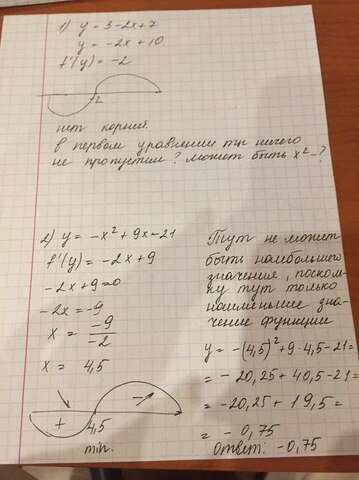 1) y = 3-2x+7
y = -2x+10
f'(y) = -2
-2
нет корней.
В первом уравнении ты ничего
не пропустил? может быть x²-?
2) y = -x²+9x-21
f'(y) = -2x+9
-2x+9=0
-2x = -9
x = -9/-2
x = 4,5
+ 4,5 -
min.
Тут не может
быть наибольшего
значения, поскольку
тут только
наименьшее зна-
чение функции
y = -(4,5)²+9·4,5-21=
= -20,25+40,5-21=
= -20,25+19,5=
= -0,75
Ответ: -0,75